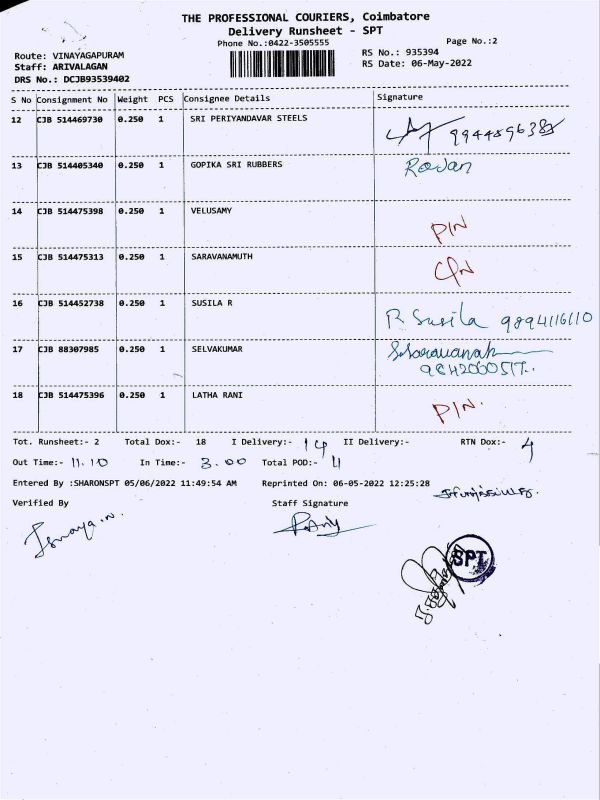 THE PROFESSIONAL COURIERS, Coimbatore
Delivery Runsheet - SPT
Phone No.:0422-3505555
Page No.:2
Route: VINAYAGAPURAM
RS No.: 935394
Staff: ARIVALAGAN
RS Date: 06-May-2022
DRS No.: DCJB93539402
S No Consignment No Weight PCS Consignee Details Signature
12 CJB 514469730 0.250 1 SRI PERIYANDAVAR STEELS
13 CJB 514405340 0.250 1 GOPIKA SRI RUBBERS
14 CJB 514475398 0.250 1 VELUSAMY P/N
15 CJB 514475313 0.250 1 SARAVANAMUTH
16 CJB 514452738 0.250 1 SUSILA R R Susila 9894116110
17 CJB 88307985 0.250 1 SELVAKUMAR
18 CJB 514475396 0.250 1 LATHA RANI P/N.
Tot. Runsheet:- 2 Total Dox:- 18 I Delivery:- 14 II Delivery:- RTN Dox:- 4
Out Time:- 11.10 In Time:- 3.00 Total POD:- 11
Entered By :SHARONSPT 05/06/2022 11:49:54 AM Reprinted On: 06-05-2022 12:25:28
Verified By Staff Signature
SPT